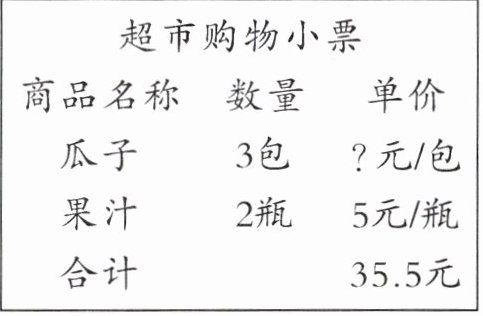 超市购物小票
商品名称 数量 单价
瓜子 3包 ?元/包
果汁 2瓶 5元/瓶
合计 35.5元